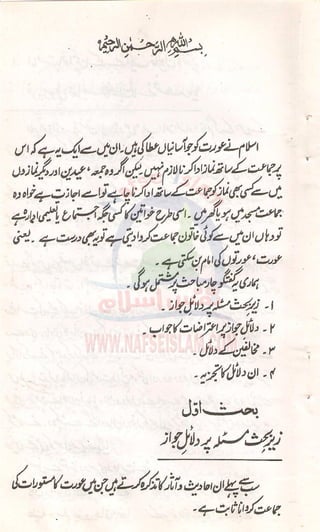 بسم اللہ الرحمٰن الرحیم
اسلام نے عورت کو جو آسانیاں عطا کی ہیں۔ ان میں سے ایک یہ ہے کہ اس
پر جماعت کے ساتھ نماز ادا کرنا لازم نہیں۔ لیکن اگر وہ جمعہ، عیدین اور دیگر نمازوں
میں سے کسی بھی نماز کو جماعت کے ساتھ ادا کرنا چاہے تو اسے اجازت ہے خواہ وہ
جماعت مسجد میں ہو یا گھر میں۔ اسی طرح خواتین کا کسی جگہ اجتماع یا تعلیمی ادارہ ہے
تو وہاں ان میں سے کوئی خاتون جماعت کروا دیتی ہے تو یہ بھی درست ہے۔ یعنی
عورت، عورتوں کی امام بن سکتی ہے۔
ہماری یہ گفتگو چار مباحث پر مشتمل ہو گی۔
۱۔ زیر بحث مسئلہ پر دلائل جواز۔
۲۔ دلائل جواز پر اعتراضات کا جواب۔
WWW.NAFSEISLAM.COM
۳۔ مخالفین کے دلائل۔
۴۔ ان دلائل کا تجزیہ۔
بحث اوّل
زیر بحث مسئلہ پر دلائل جواز
سب سے پہلے ان احادیث و آثار کا تذکرہ کرتے ہیں جن میں عورت کا مستورات کی
جماعت کروانا ثابت ہے۔